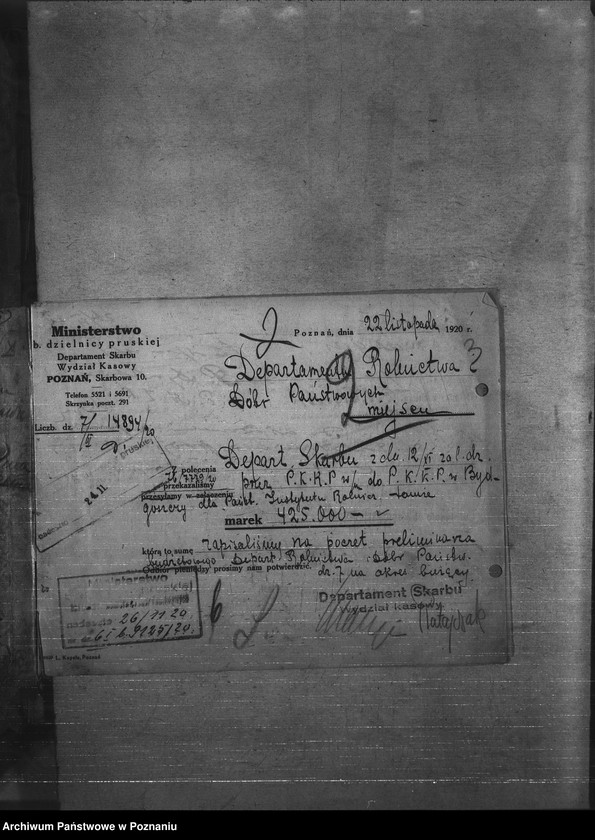 Ministerstwo
b. dzielnicy pruskiej
Departament Skarbu
Wydział Kasowy
POZNAŃ, Skarbowa 10.
Telefon 5521 i 5691
Skrzynka poczt. 291
Liczb. dz. 7/ 14894/20
Poznań, dnia 22 listopada 1920 r.
2
Departament Rolnictwa
Dóbr Państwowych
miejscu
pruskiej
24.11
Z polecenia Depart Skarbu z dn. 12/ za l. dz.
przekazaliśmy przez P. K. K. P. w do P. K. K. P. w Byd-
przesyłamy w załączeniu goszczy dla Państ. Instytutu Rolnicz.
marek 425.000 —
którą to sumę zapisaliśmy na poczet preliminarza
Depart Rolnictwa Dóbr Państw.
Odbiór pieniędzy prosimy nam potwierdzić. dz. 7 na okres bieżący
Departament Skarbu
Wydział kasowy
Ministerstwo
26/11 20
Archiwum Państwowe w Poznaniu